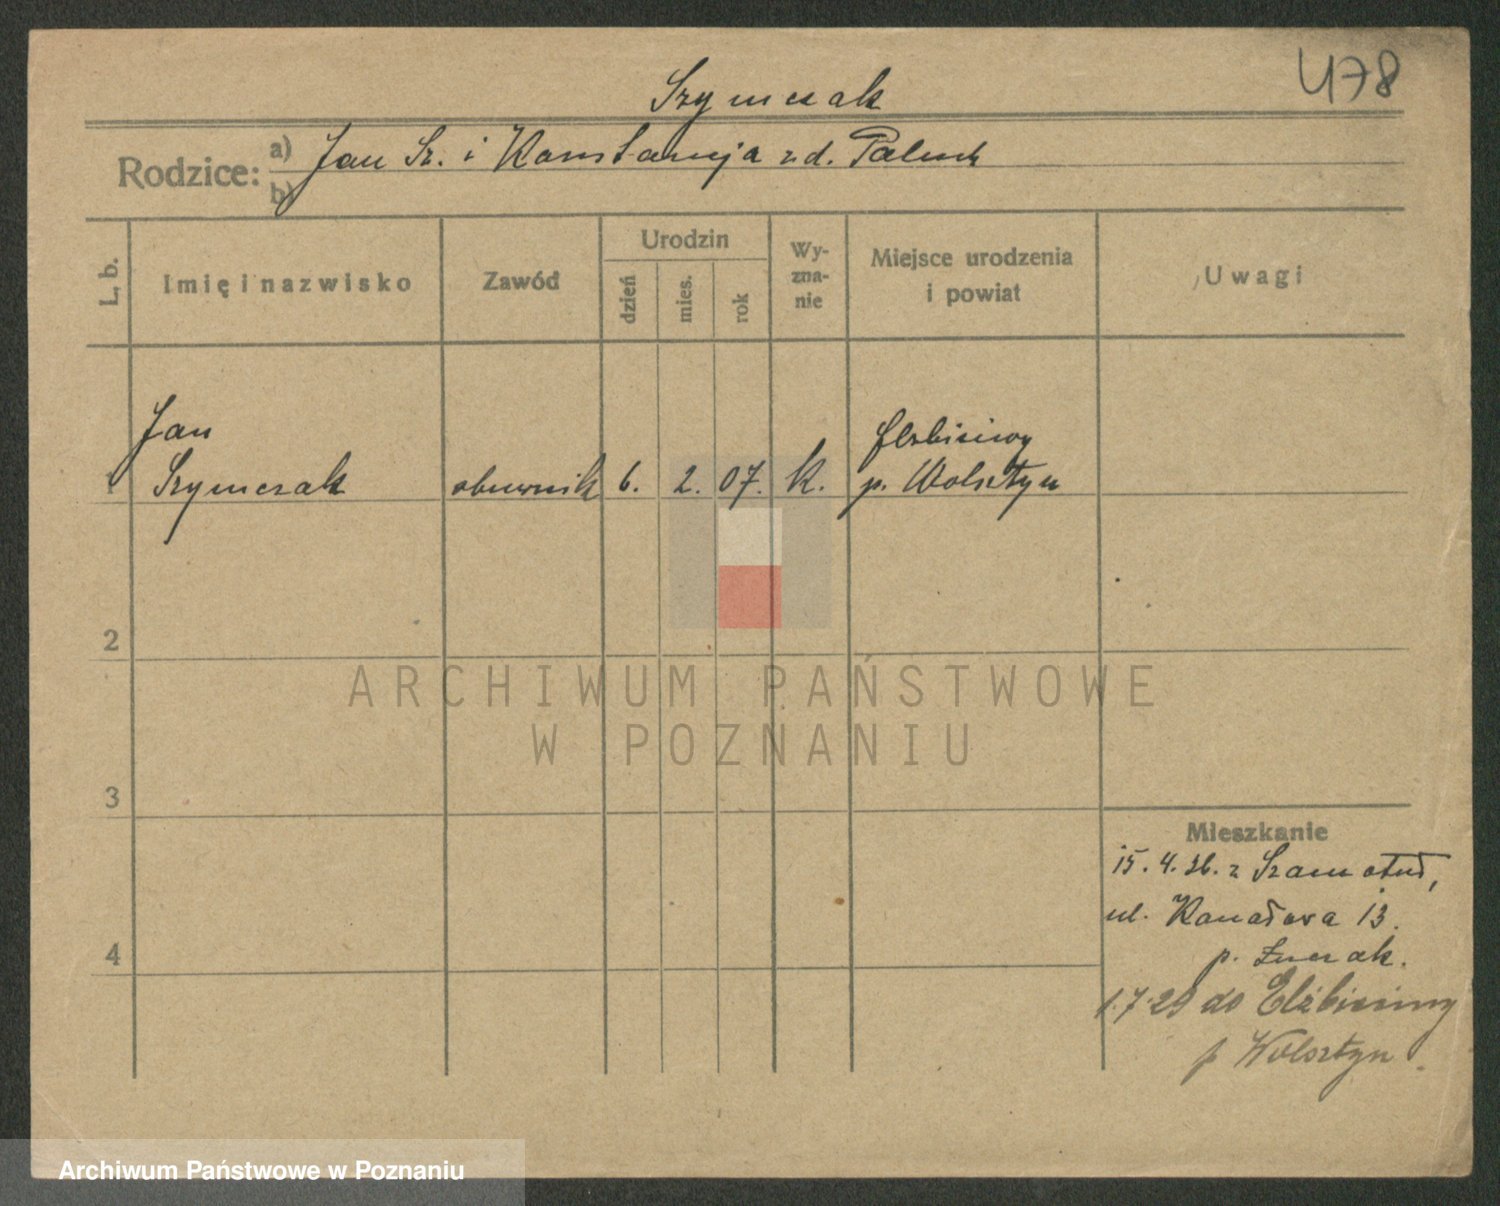 478
Szymczak
Rodzice: a) Jan Sz. i Konstancja z d. Paluch
b)
L. b.
Imię i nazwisko
Zawód
Urodzin
dzień
mies.
rok
Wy-
zna-
nie
Miejsce urodzenia
i powiat
Uwagi
Jan
1 Szymczak
obuwnik
6.
2.
07.
k.
p. Wolsztyn
2
3
4
Mieszkanie
15. 4. 26. z Szamotuł,
ul. Kanałowa 13.
p.
1.7.29 do
p Wolsztyn.
ARCHIWUM PAŃSTWOWE
W POZNANIU
Archiwum Państwowe w Poznaniu